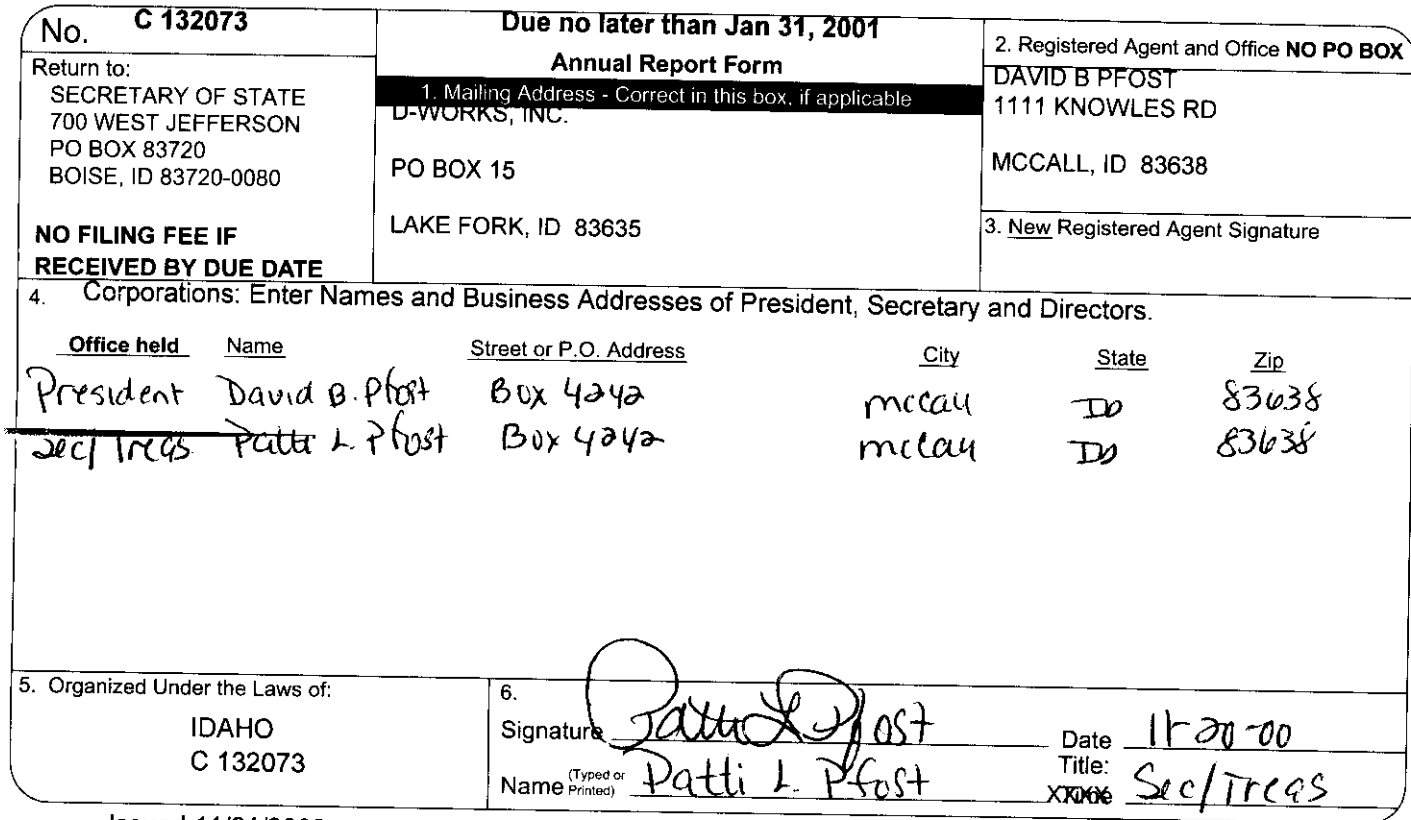 No. C 132073
Return to:
SECRETARY OF STATE
700 WEST JEFFERSON
PO BOX 83720
BOISE, ID 83720-0080
NO FILING FEE IF
RECEIVED BY DUE DATE
Due no later than Jan 31, 2001
Annual Report Form
1. Mailing Address - Correct in this box, if applicable
D-WORKS, INC.
PO BOX 15
LAKE FORK, ID 83635
2. Registered Agent and Office NO PO BOX
DAVID B PFOST
1111 KNOWLES RD
MCCALL, ID 83638
3. New Registered Agent Signature
4. Corporations: Enter Names and Business Addresses of President, Secretary and Directors.
Office held Name Street or P.O. Address City State Zip
President David B. Pfost Box 4242 mccall ID 83638
Sec/Treas. Patti L. Pfost Box 4242 mccall ID 83638
5. Organized Under the Laws of:
IDAHO
C 132073
6.
Signature Patti L Pfost Date 11-20-00
Name (Typed or Printed) Patti L. Pfost Title: Sec/Treas